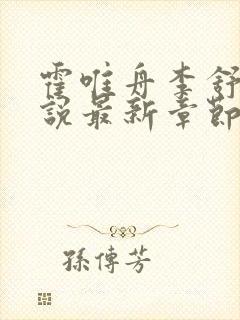 霍唯舟李舒
說最新章節
孫傳芳